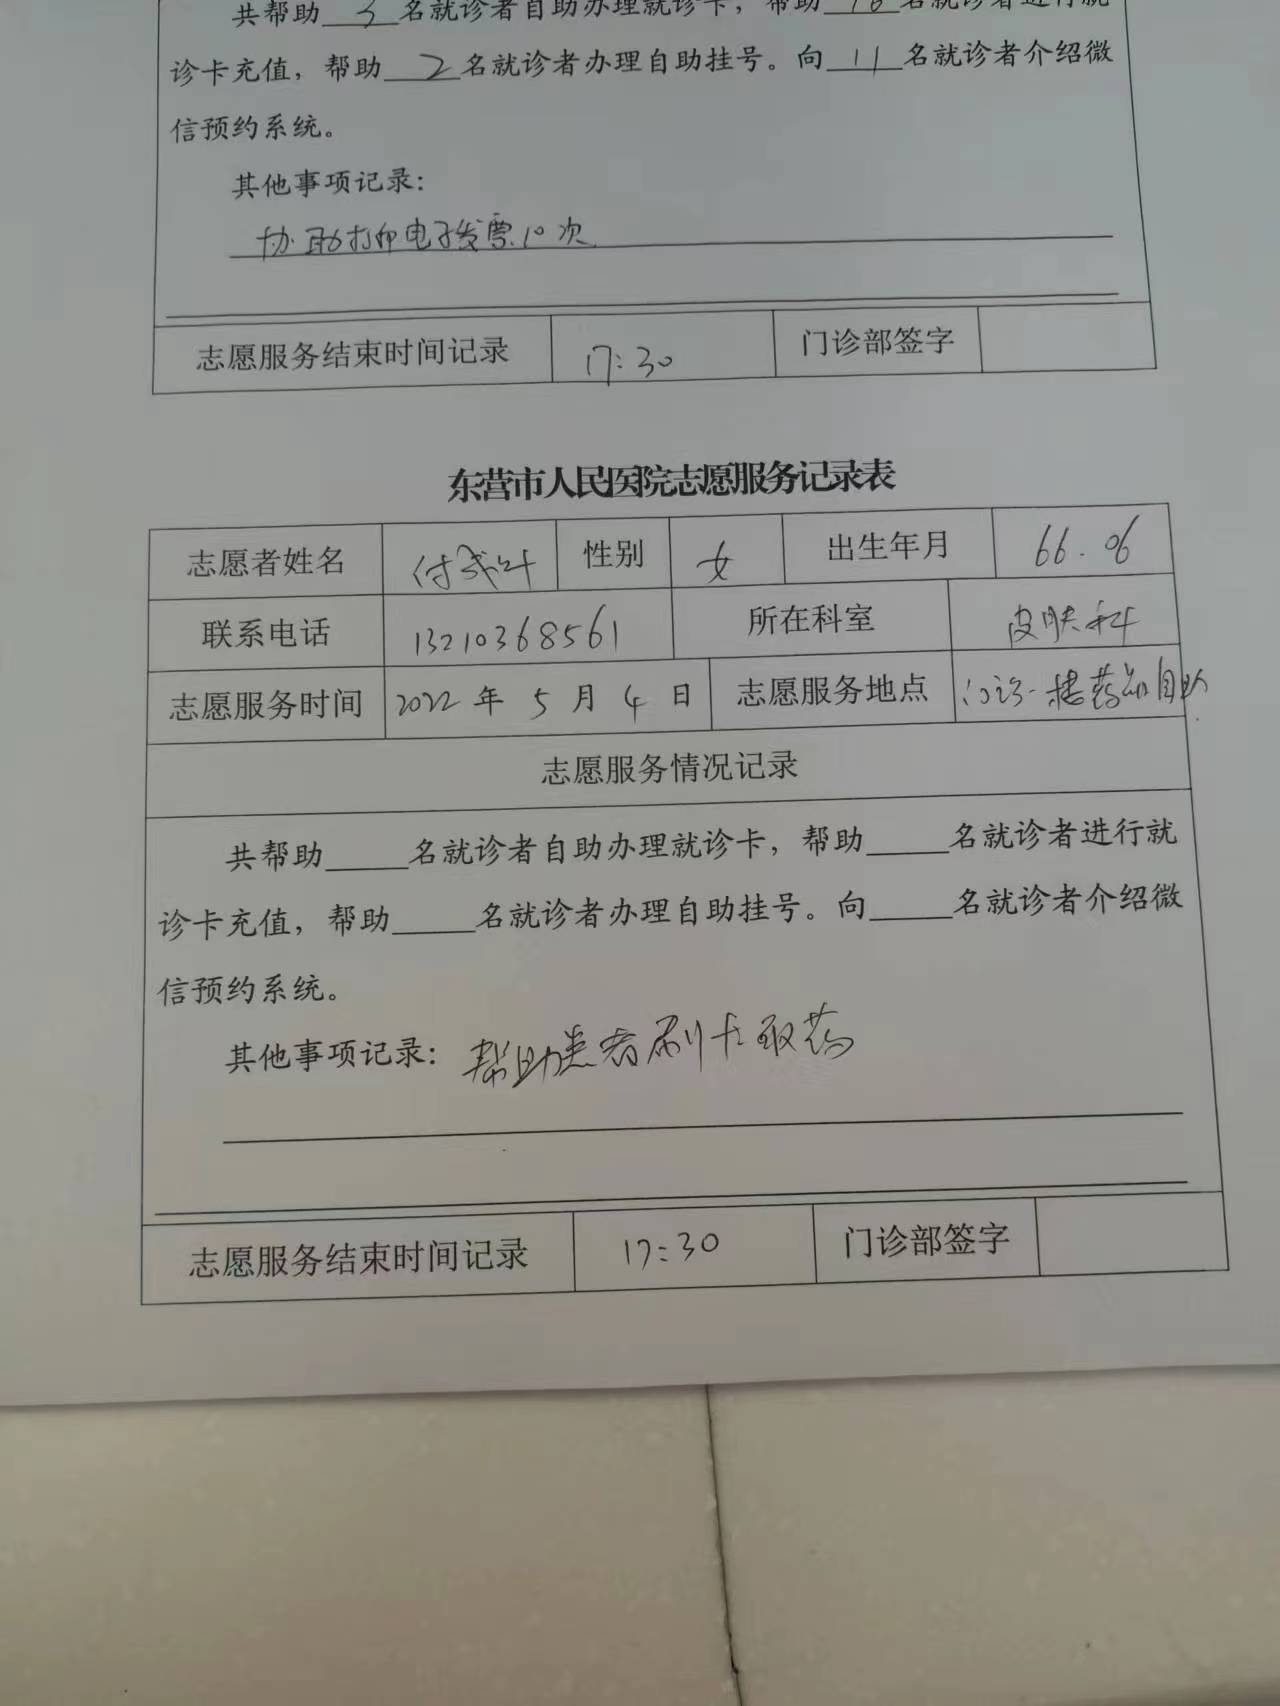 共帮助 3 名就诊者自助办理就诊卡，帮助 18 名就诊者进行就
诊卡充值，帮助 2 名就诊者办理自助挂号。向 11 名就诊者介绍微
信预约系统。
其他事项记录：
协助打印电子发票10次
志愿服务结束时间记录 17:30 门诊部签字
东营市人民医院志愿服务记录表
志愿者姓名 付 性别 女 出生年月 66.06
联系电话 13210368561 所在科室 皮肤科
志愿服务时间 2022年5月4日 志愿服务地点 门诊一楼药 自助
志愿服务情况记录
共帮助____名就诊者自助办理就诊卡，帮助____名就诊者进行就
诊卡充值，帮助____名就诊者办理自助挂号。向____名就诊者介绍微
信预约系统。
其他事项记录：帮助患者刷卡取药
志愿服务结束时间记录 17:30 门诊部签字